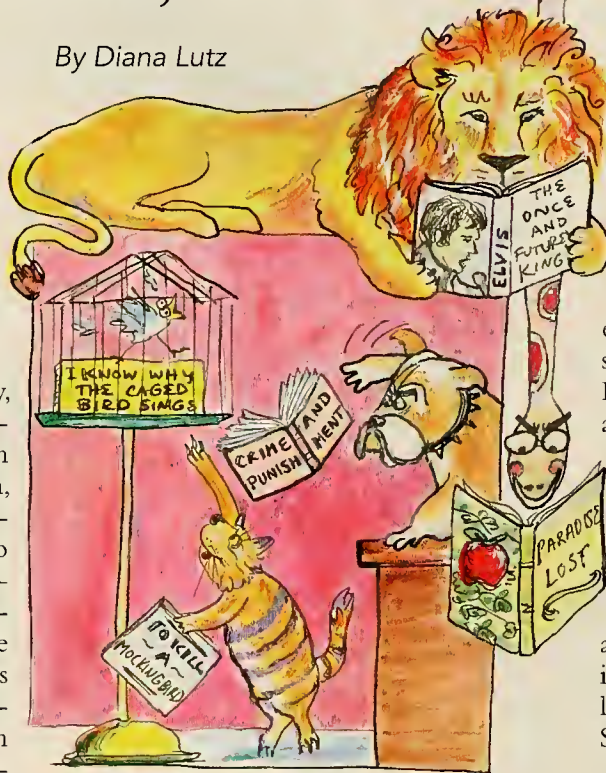 By Diana Lutz
ELVIS
THE
ONCE
AND
FUTURE
KING
I KNOW WHY
THE CAGED
BIRD SINGS
CRIME AND
PUNISHMENT
PARADISE
LOST
TO KILL
~ A ~
MOCKINGBIRD